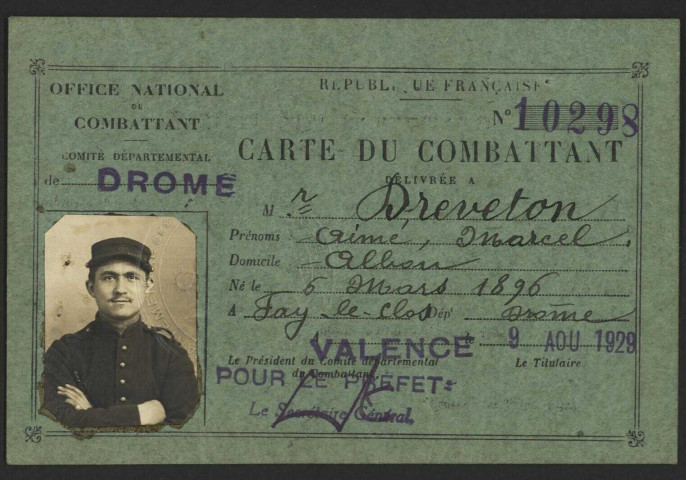 OFFICE NATIONAL
DU
COMBATTANT
COMITÉ DÉPARTEMENTAL
de DROME
RÉPUBLIQUE FRANÇAISE
N° 10298
CARTE DU COMBATTANT
DÉLIVRÉE A
M r Dreveton
Prénoms Aimé, Marcel.
Domicile Albon
Né le 6 Mars 1896
A Fay-le-Clos Dépt Drôme
VALENCE 9 AOU 1929
Le Président du Comité départemental
du Combattant,
Le Titulaire
POUR LE PRÉFET:
Le Secrétaire Général.